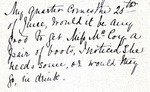 My quarter comes the 25th
of June, would it be any
good to get Miss McCoy a
pair of boots, I noticed she
needs some, or would they
go in drink.